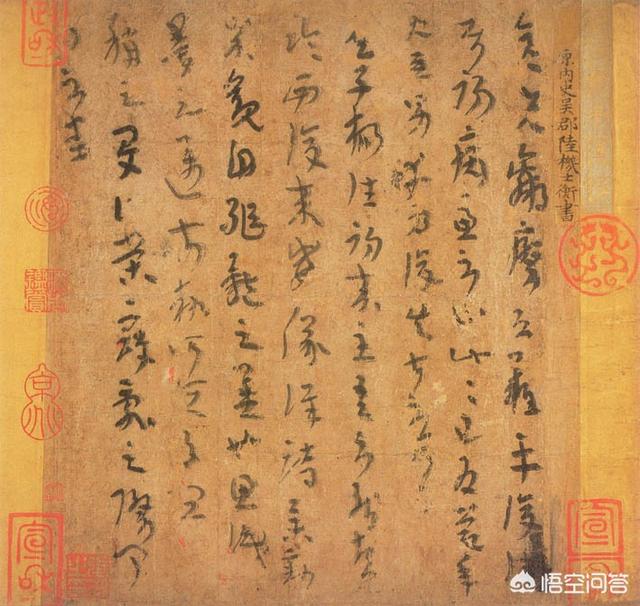 原內史吳郡陸機士衡書
彦先羸瘵恐難平復往
屬初病慮不止此此已為慶承
使唯男幸為復失前憂耳
吳子楊往初來主吾不能盡
臨西復來威儀詳跱舉動
成觀自軀體之美也思識
量之邁前執所恒有宜
稱之夏伯榮寇亂之際聞
問不悉
悟空问答